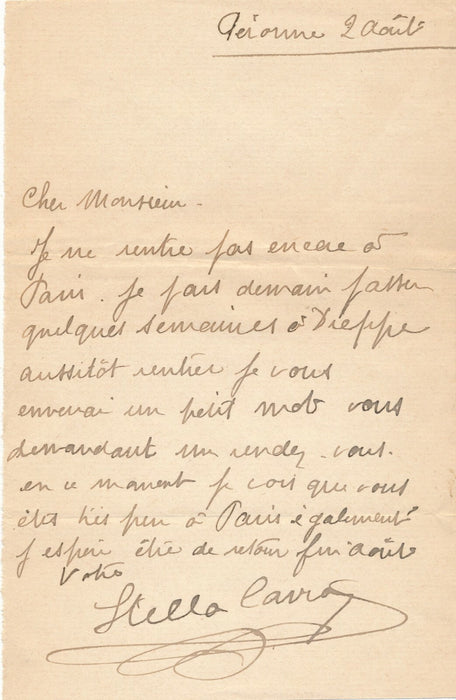 Péronne 2 Août
Cher Monsieur -
Je ne rentre pas encore à
Paris. Je pars demain passer
quelques semaines à Dieppe
aussitôt rentrée je vous
enverai un petit mot vous
demandant un rendez-vous.
en ce moment je vois que vous
êtes très peu à Paris également
J'espère être de retour fin août
Votre
Stella